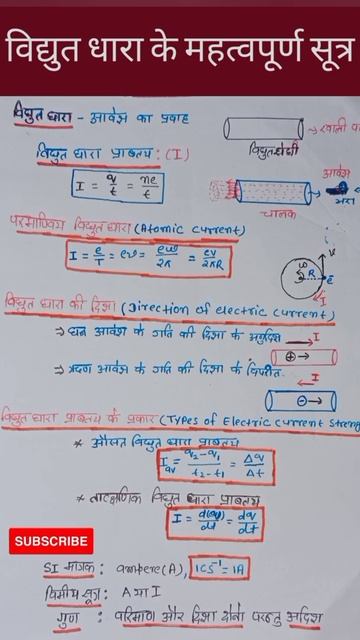 विद्युत धारा के महत्वपूर्ण सूत्र
विद्युत धारा - आवेश का प्रवाह
विद्युत धारा प्राबल्य : (I)
I = q/t = ne/t
→ खाली
आवेश
चालक
परमाण्विक विद्युत धारा (Atomic current)
I = e/T = eν = eω/2π = ev/2πR
R
E
विद्युत धारा की दिशा (Direction of electric current)
→ धन आवेश के गति की दिशा के अनुदिश
I
⊕→
→ ऋण आवेश के गति की दिशा के विपरीत
I
⊖→
विद्युत धारा प्राबल्य के प्रकार (Types of Electric current Streng
* औसत विद्युत धारा प्राबल्य
I av = q₂-q₁/t₂-t₁ = Δq/Δt
* तात्क्षणिक विद्युत धारा प्राबल्य
I = d(q)/dt = dq/dt
SUBSCRIBE
SI मात्रक : ampere (A), 1CS⁻¹ = 1A
विमीय सूत्र : A या I
गुण : परिमाण और दिशा दोनो परन्तु अदिश